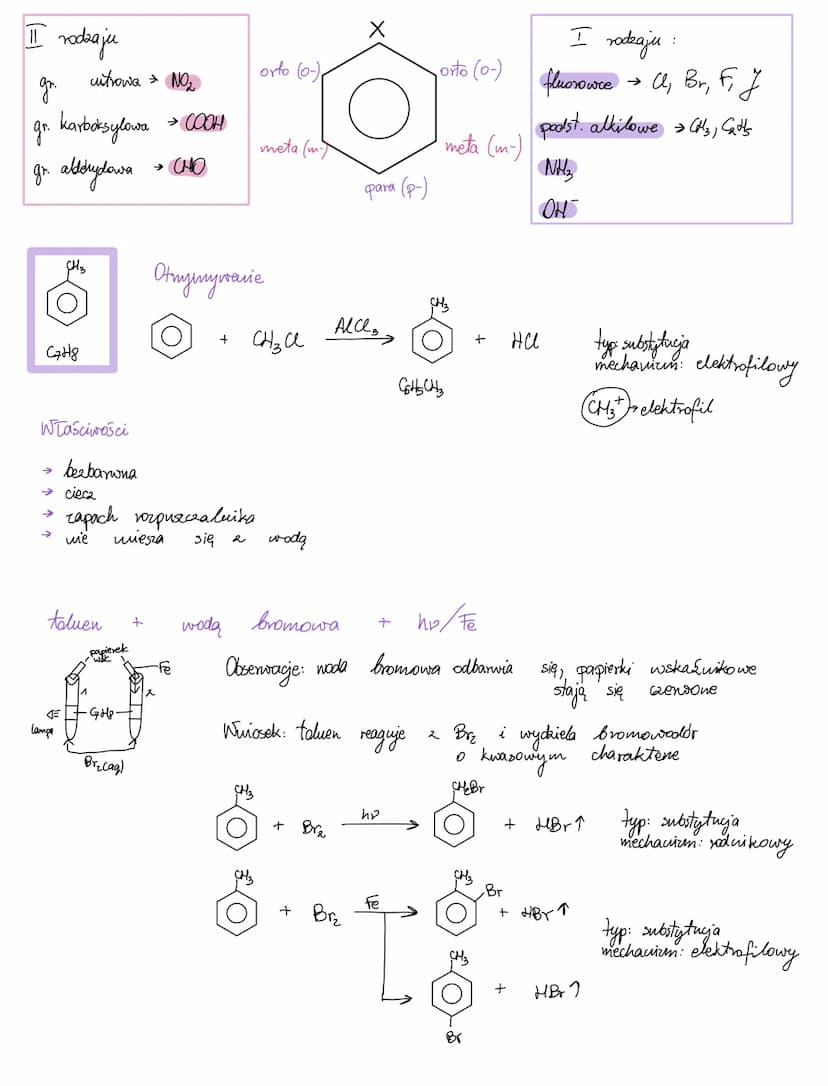 X
II rodzaju
gr. nitrowa → NO₂
gr. karboksylowa → COOH
gr. aldehydowa → CHO
orto (o-)
orto (o-)
meta (m-)
meta (m-)
para (p-)
I rodzaju :
fluorowce → Cl, Br, F, J
podst. alkilowe → CH₃, C₂H₅
NH₃
OH⁻
CH₃
C₇H₈
Otrzymywanie
+ CH₃Cl AlCl₃ → CH₃ + HCl
C₆H₅CH₃
typ: substytucja
mechanizm: elektrofilowy
CH₃⁺ → elektrofil
Właściwości
→ bezbarwna
→ ciecz
→ zapach rozpuszczalnika
→ nie miesza się z wodą
toluen + wodą bromowa + hν/Fe
papierek
wsk.
Fe
1
2
C₇H₈
lampa
Br₂(aq)
Obserwacje: woda bromowa odbarwia się, papierki wskaźnikowe
stają się czerwone
Wniosek: toluen reaguje z Br₂ i wydziela bromowodór
o kwasowym charakterze
CH₃ + Br₂ hν → CH₂Br + HBr↑
typ: substytucja
mechanizm: rodnikowy
CH₃ + Br₂ Fe → CH₃ Br + HBr↑
typ: substytucja
mechanizm: elektrofilowy
CH₃ + HBr↑
Br